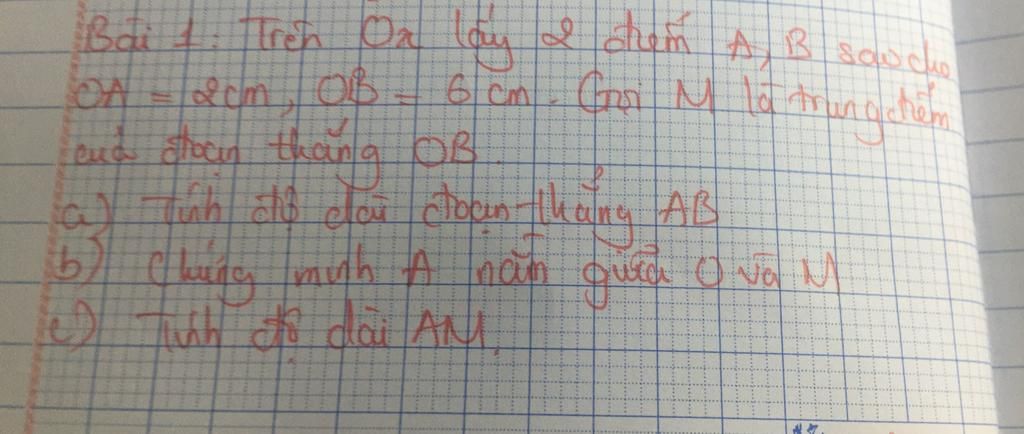 Bài 1: Trên Ox lấy 2 điểm A, B sao cho
OA = 2cm, OB = 6 cm. Gọi M là trung điểm
của đoạn thẳng OB.
a) Tính độ dài đoạn thẳng AB
b) Chứng minh A nằm giữa O và M
c) Tính độ dài AM.